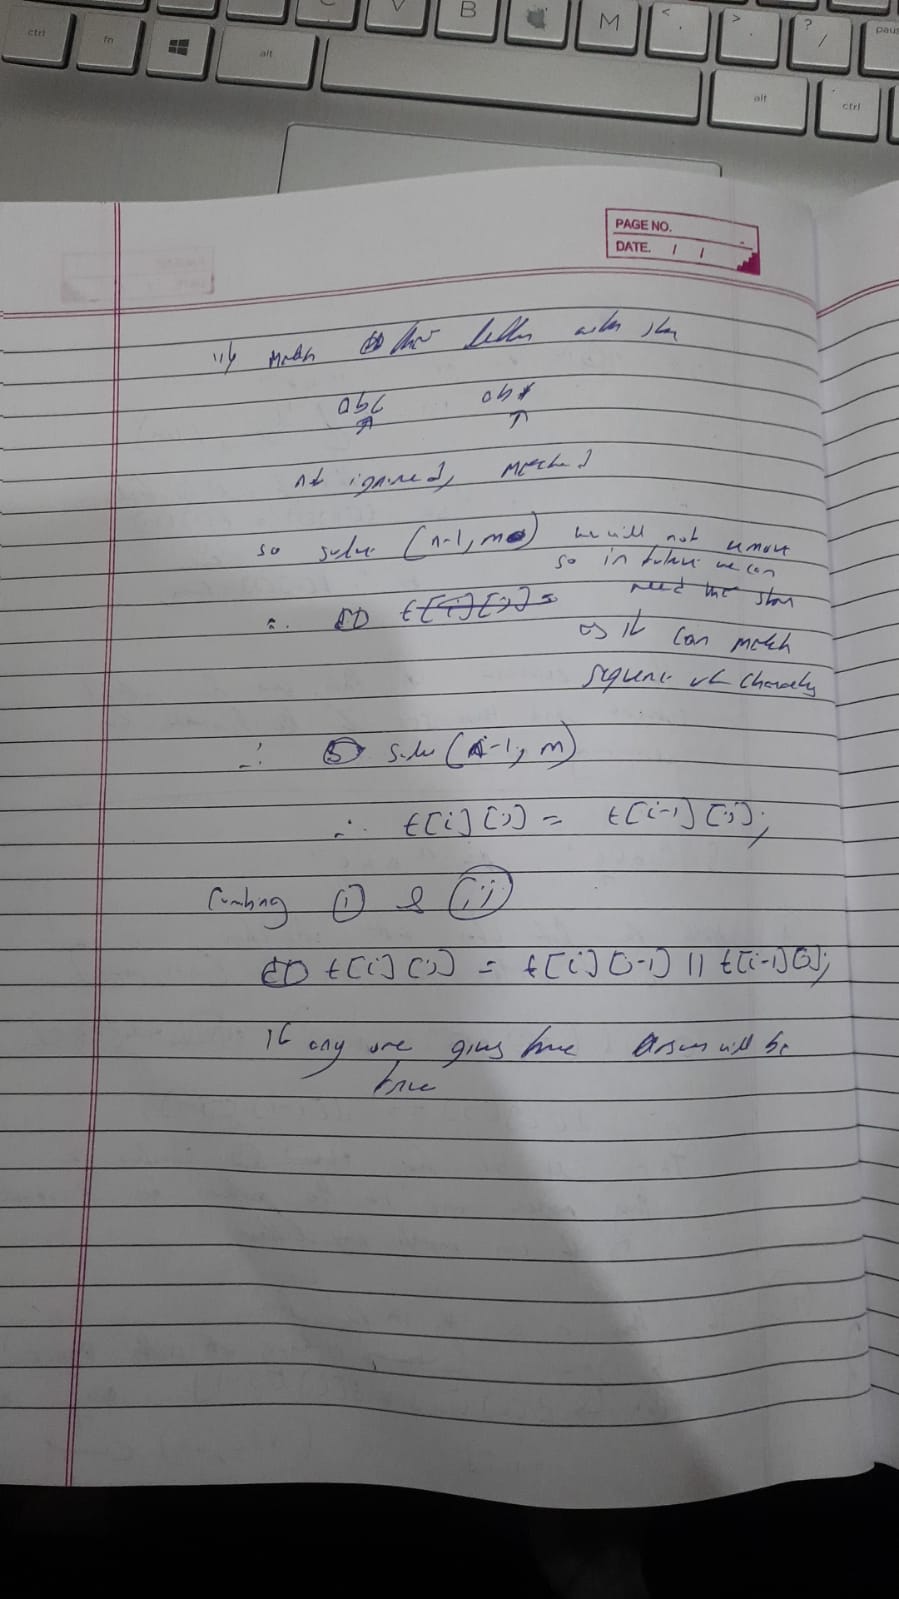 ctrl
fn
alt
C
V
B
M
< ,
> .
? /
alt
ctrl
PAGE NO.
DATE. / /
ii) match letter with star
abc ab*
not ignored, matched
so solve (n-1, m) we will not remove
so in future we can
need the star
∴ t[i][j]=
as it can match
sequence of characters
∴ solve (i-1, m)
∴ t[i][j] = t[i-1][j];
Combing (i) & (ii)
t[i][j] = t[i][j-1] || t[i-1][j];
If any one gives true answer will be
true